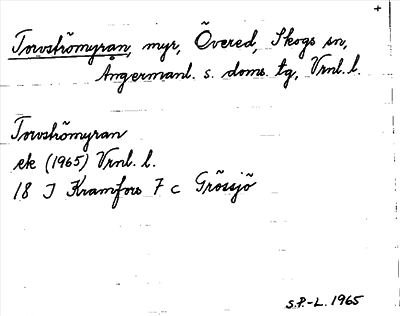 +
Torvshömyran, myr, Övered, Skogs sn,
Ångermanl. s. doms. tg, Vrnl. l.
Torvshömyran
ek (1965) Vrnl. l.
18 J Kramfors 7 c Grössjö
S.P.-L. 1965